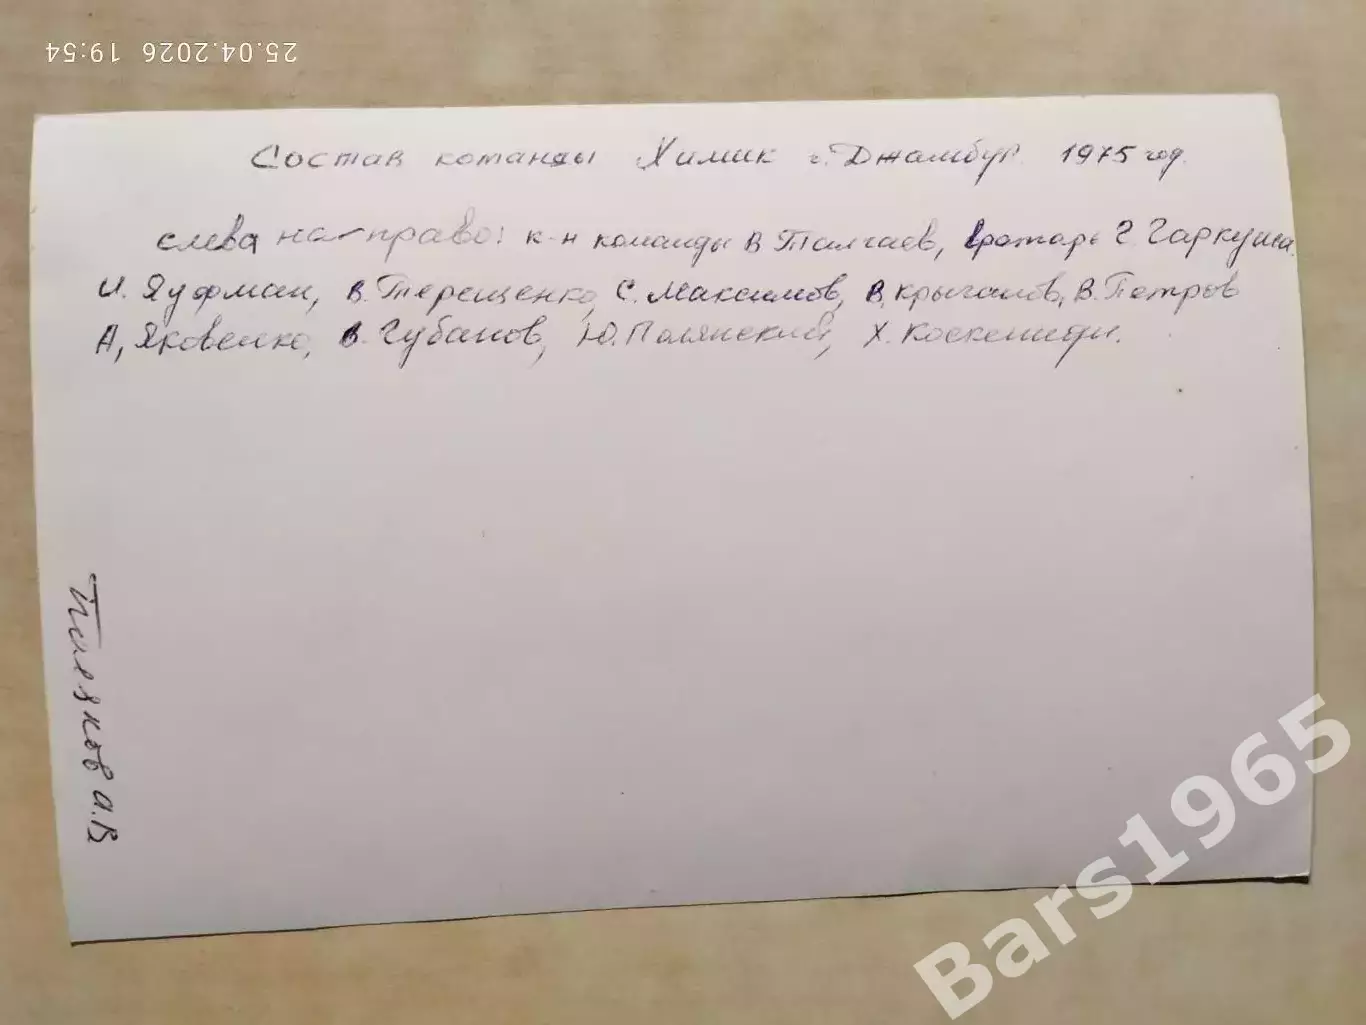 25.04.2026 19:54
Состав команды Химик г. Джамбул 1975 год.
слева на-право: к-н команды В Талгаев, вратарь Г. Гаркуша.
И. Яуфман, В. Терещенко, С. Максимов, В. Крыганов, В. Петров
А, Яковенко, В. Губанов, Ю. Полянский, Х. Коскениди.
Поляков А.В
Bars1965